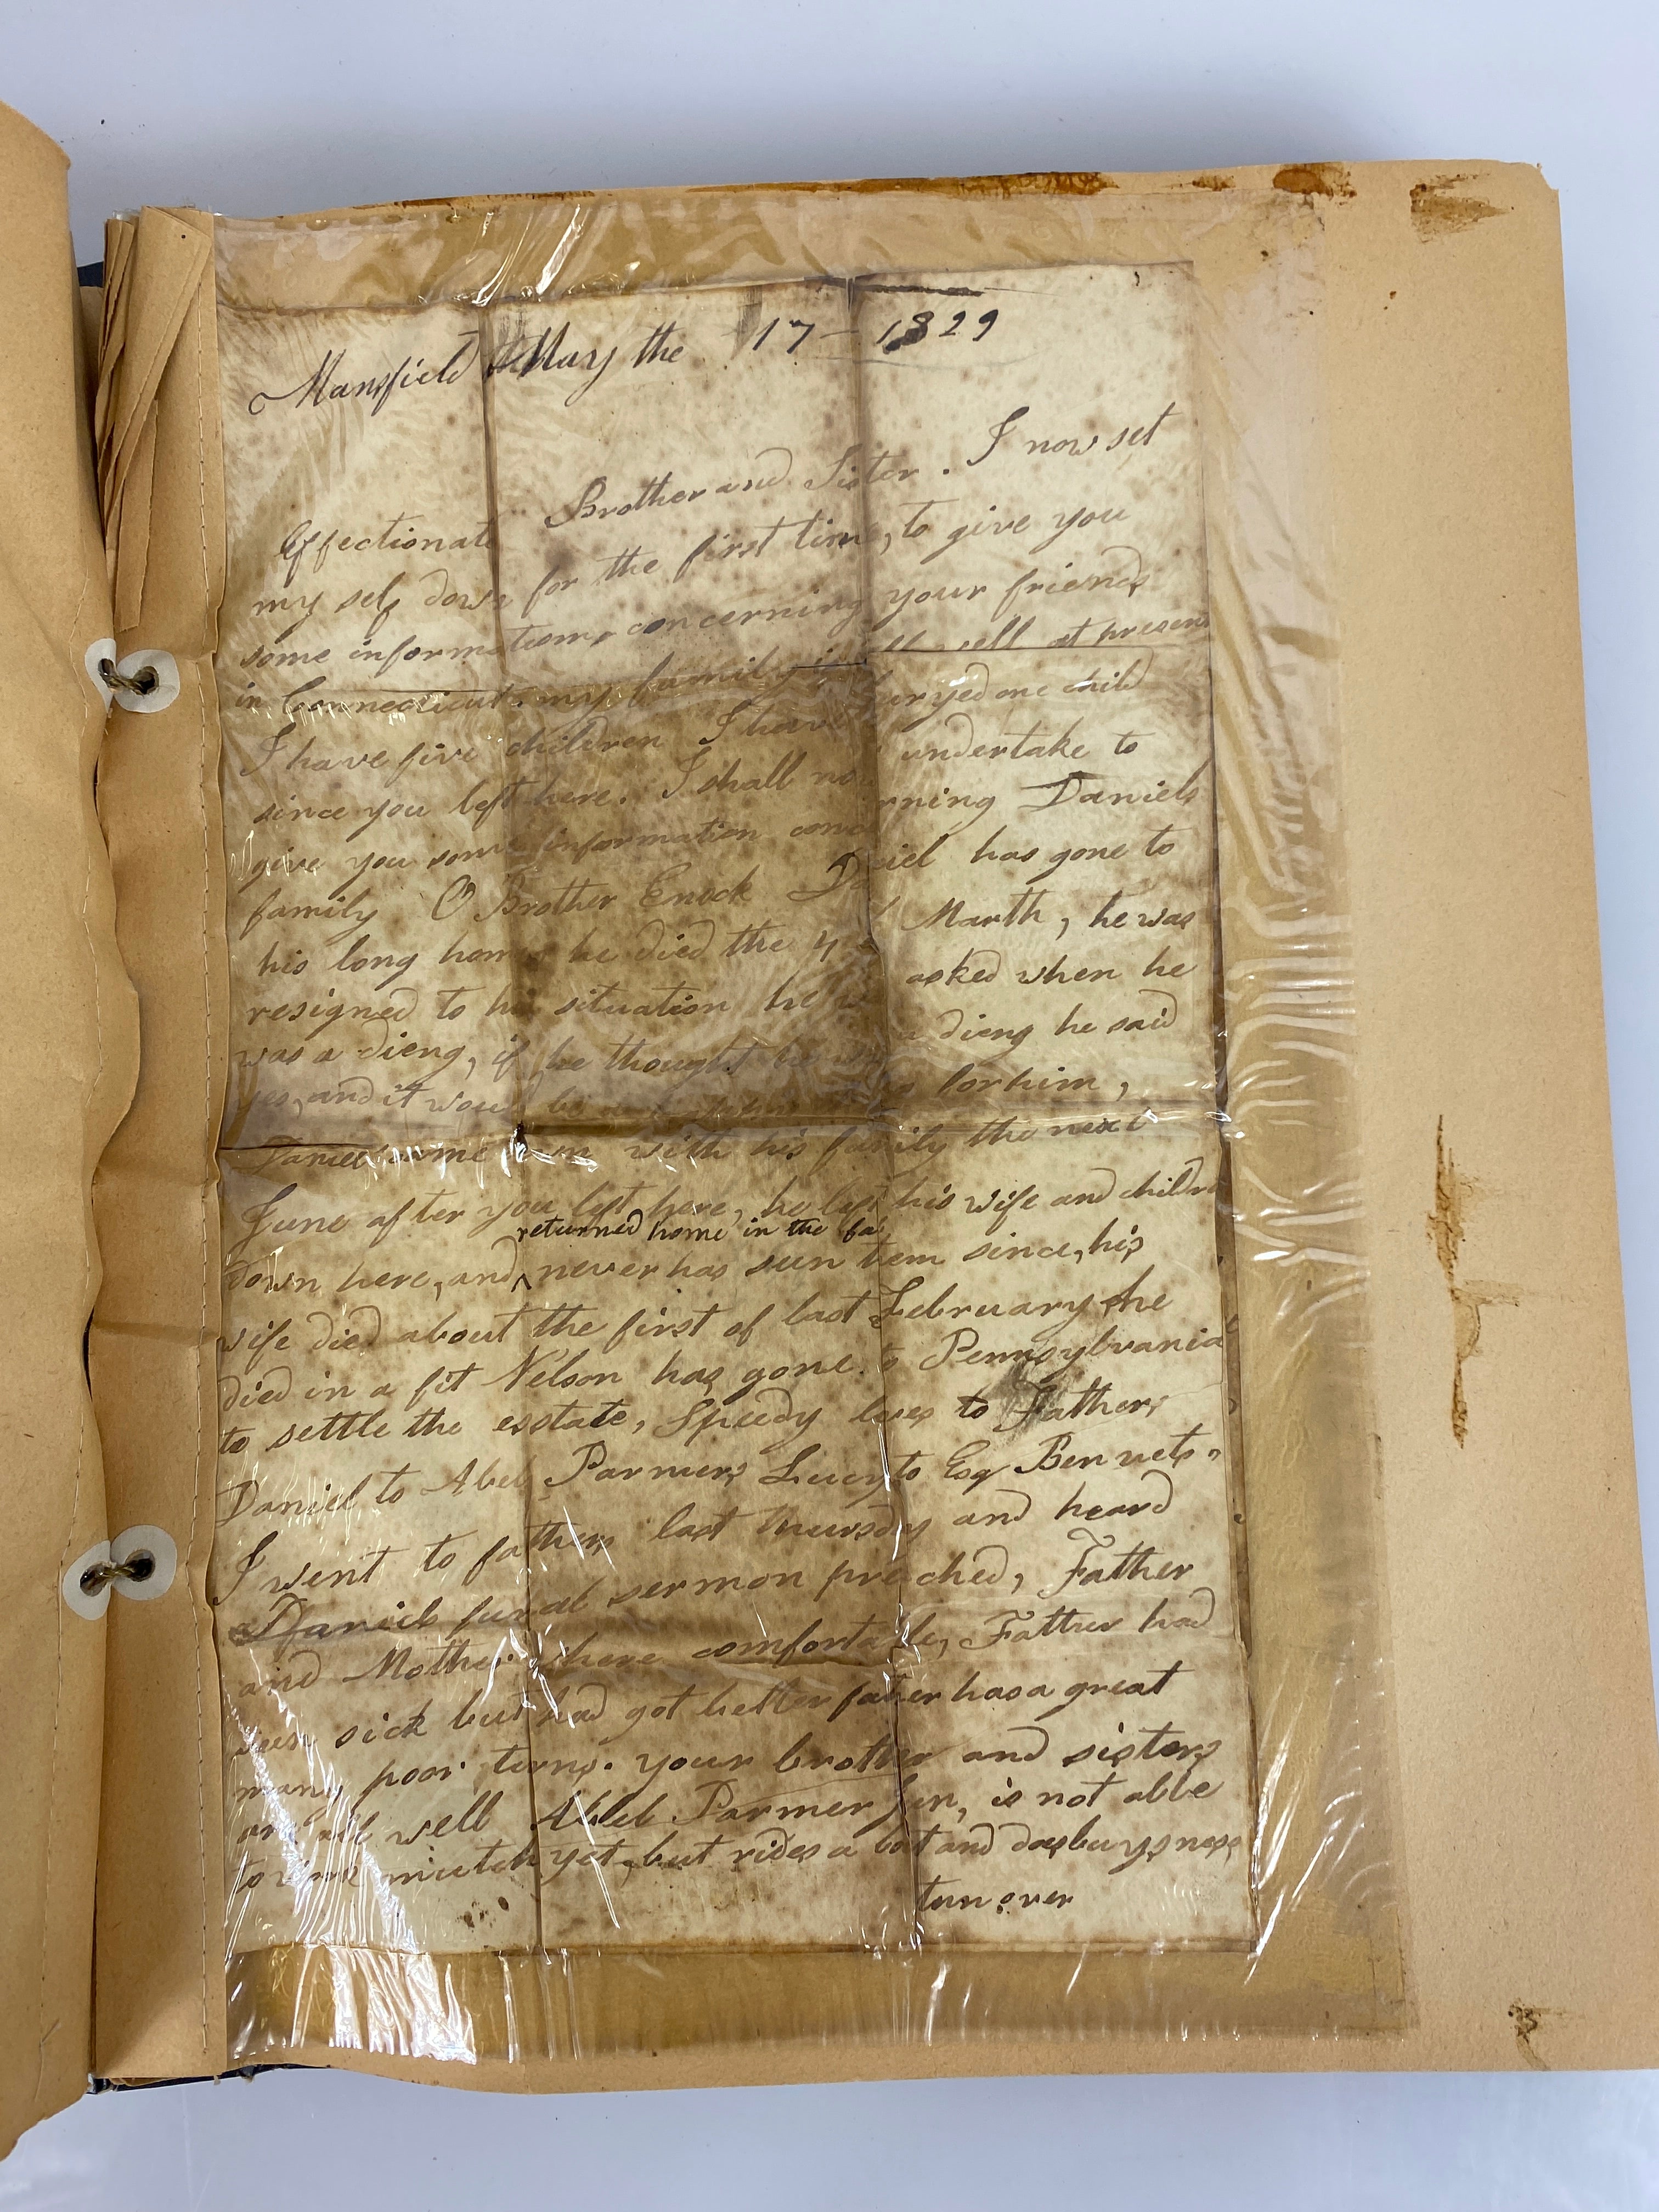 Mansfield May the 17 – 1829
Effectionate Brother and Sister. I now set
my self down for the first time, to give you
some information, concerning your friends
in Connecticut, my family is all well at present
I have five children I have buryed one child
since you left here. I shall now undertake to
give you some information concerning Daniels
family O Brother Enock Daniel has gone to
his long home he died the 4 Marth, he was
resigned to his situation he was asked when he
was a dieng, if he thought he was a dieng he said
yes, and it would be for him,
Daniel come down with his family the next
June after you left here, he left his wife and children
returned home in the fa
down here, and ^ never has seen them since, his
wife died about the first of last February she
died in a fit Nelson has gone to Pennsylvania
to settle the esstate, Speedy lives to Fathers
Daniel to Abel Parmers Lucy to Esq Bennets,
I went to fathers last thursdy and heard
Daniel funral sermon preached, Father
and Mother where comfortable, Father had
been sick but had got better father has a great
many poor turns. your brother and sisters
are all well Abel Parmer Jun, is not able
to mutch yet, but rides a bot and does buysness
turn over